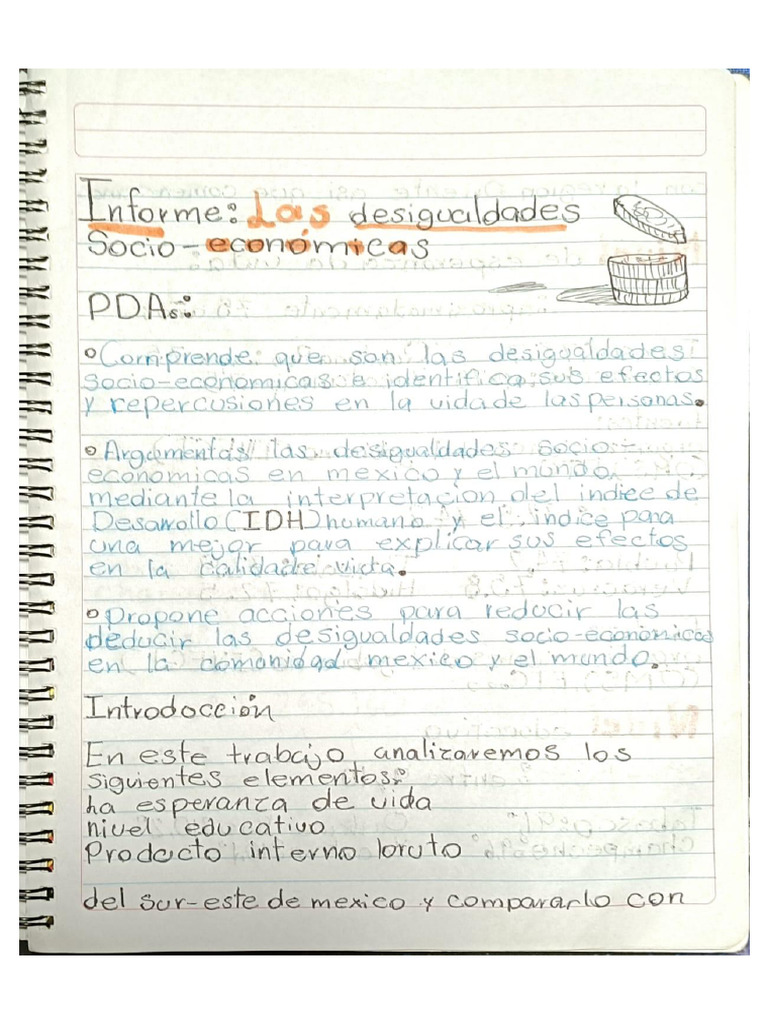 Informe: Las desigualdades
Socio-económicas
PDA:
Comprende que son las desigualdades
socio-economicas e identifica sus efectos
y repercusiones en la vida de las personas.
Argumentas las desigualdades socio-
economicas en mexico y el mundo,
mediante la interpretacion del indice de
Desarrollo (IDH) humano y el indice para
una mejor para explicar sus efectos
en la calidad e vida.
Propone acciones para reducir las
deducir las desigualdades socio-economicas
en la comonidad mexico y el mundo.
Introdocción
En este trabajo analizaremos los
siguientes elementos:
ha esperanza de vida
nivel educativo
Producto interno loruto
del sur-este de mexico y compararlo con